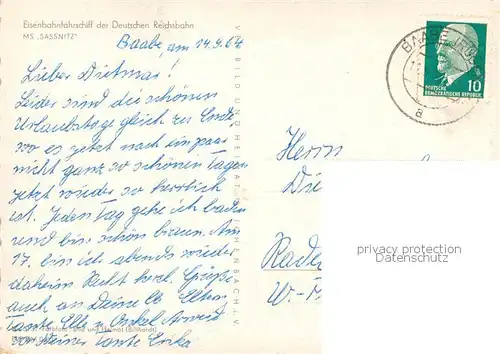 Eisenbahnfährschiff der Deutschen Reichsbahn
MS „SASSNITZ"
Baabe, am 14.9.64
Lieber Dietmar!
Leider sind die schönen
Urlaubstage gleich zu Ende,
wo es jetzt nach ein paar
nicht ganz so schönen Tagen
jetzt wieder so herrlich
ist. Jeden Tag gehe ich baden
und bin schön braun. Am
17. bin ich abends wieder
daheim. Recht herzl. Grüße
auch an Deine lb. Eltern
Tante u. Onkel
von Deiner Tante Erika
BILD UND HEIMAT
REICHENBACH i. V.
BAABE
a
10
DEUTSCHE
DEMOKRATISCHE REPUBLIK
Herrn
Die
Rade
W.-
privacy protection
Datenschutz